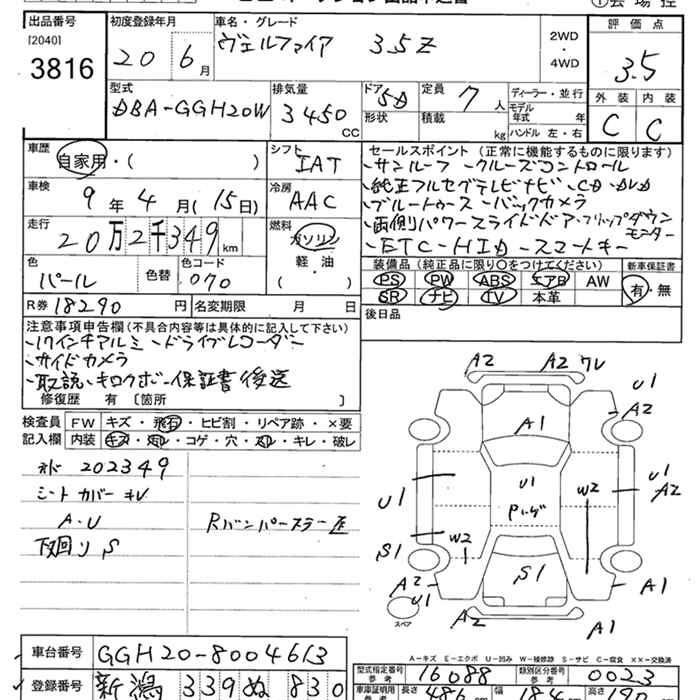 出品番号 初度登録年月 車名・グレード 評価点
[2040] 20 6月 ヴェルファイア 3.5Z 2WD・4WD 3.5
3816
型式 排気量 ドア 定員 ディーラー・並行 外装 内装
DBA-GGH20W 3450CC 5D 7人 モデル年式 年 C C
形状 積載 kg ハンドル 左・右
車歴 自家用・( ) シフト IAT セールスポイント (正常に機能するものに限ります)
・サンルーフ ・クルーズコントロール
車検 9年 4月(15日) 冷房 AAC ・純正フルセグテレビナビ・CD・DVD
・ブルートゥース ・バックカメラ
走行 20万2千349km 燃料 ガソリン 軽・油 ( ) ・両側パワースライドドア・フリップダウンモニター
・ETC・HID・スマートキー
色 パール 色替 色コード 070 装備品 (純正品に限り○をつけてください) 新車保証書
PS PW ABS エアB AW 有・無
R券 18290円 名変期限 月 日 SR ナビ TV 本革
後日品
注意事項申告欄(不具合内容等は具体的に記入して下さい)
・17インチアルミ ・ドライブレコーダー
・サイドカメラ
・取説・キロクボ・保証書後送
修復歴 有 [箇所 ]
検査員 FW キズ・飛石・ヒビ割・リペア跡・×要
記入欄 内装 キズ・コゲ・穴・キレ・破レ
202349
シートカバー
A.U Rバンパーステー
下回り S
A2 A2 ワレ
U1 A2
A1
U1
U1 W2 U1 A2
S1 W2
S1
A2 U1 A1
スペア A2 A1
A-キズ E-エクボ U-凹み W-補修跡 S-サビ C-腐食 ××-交換済
車台番号 GGH20-8004613 型式指定番号 参考 16088 類別区分番号 参考 0023
登録番号 新潟 339 ぬ 830 車庫証明用 参考 長さ 486 幅 184 高さ 190